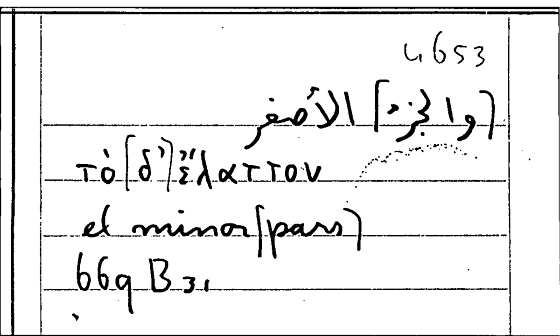 4653
[والجزء] الأصغر
τὸ [δ'] ἔλαττον
et minor [pars]
669 B 31